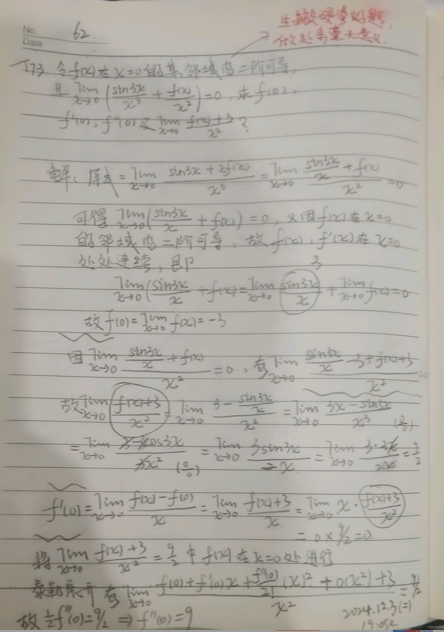 No. 62.
Date
173. 令f(x)在x=0的某邻域内二阶可导,
且 lim_{x→0}(sin3x/x³ + f(x)/x²)=0, 求f(0),
f'(0), f''(0)及 lim_{x→0} (f(x)+3)/x² ?
解: 原式= lim_{x→0} (sin3x+xf(x))/x³ = lim_{x→0} (sin3x/x + f(x))/x² =0
可得 lim_{x→0}(sin3x/x + f(x))=0, 又因f(x)在x=0
的邻域内二阶可导, 故f(x), f'(x)在x=0
处处连续, 即
lim_{x→0}(sin3x/x + f(x)= lim_{x→0} sin3x/x + lim_{x→0} f(x)=0
3
故f(0)= lim_{x→0} f(x)=-3
因 lim_{x→0} (sin3x/x + f(x))/x² =0, 有 lim_{x→0} (sin3x/x -3+f(x)+3)/x²
故 lim_{x→0} (f(x)+3)/x² = lim_{x→0} (3 - sin3x/x)/x² = lim_{x→0} (3x-sin3x)/x³ (0/0)
= lim_{x→0} (3-3cos3x)/3x² (0/0) = lim_{x→0} 3sin3x/2x = lim_{x→0} 3·3x/2x = 9/2
f'(0)= lim_{x→0} (f(x)-f(0))/x = lim_{x→0} (f(x)+3)/x = lim_{x→0} x·(f(x)+3)/x²
=0×9/2=0
将 lim_{x→0} (f(x)+3)/x² = 9/2 中f(x)在x=0处进行
泰勒展开 有 lim_{x→0} (f(0)+f'(0)x+f''(0)/2! (x)²+o(x²)+3)/x² = 9/2
故½f''(0)=9/2 ⇒ f''(0)=9
2024.12.3(二)